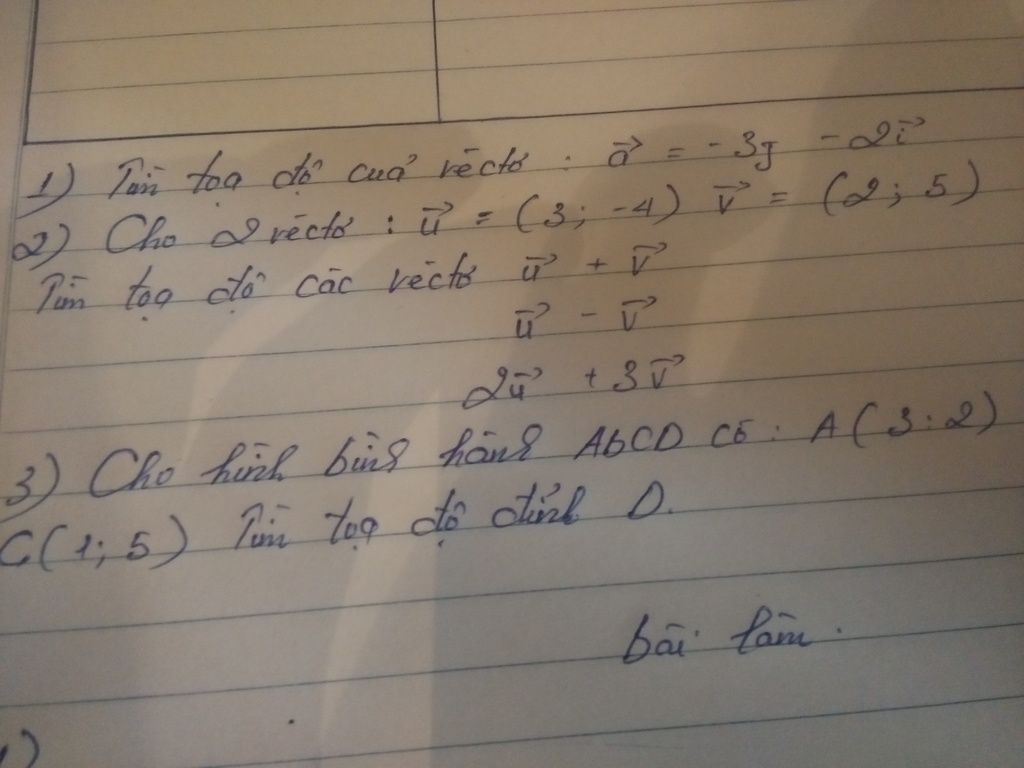 1) Tìm tọa độ của véctơ : a⃗ = -3j - 2i⃗
2) Cho 2 véctơ : u⃗ = (3; -4) v⃗ = (2; 5)
Tìm tọa độ các véctơ u⃗ + v⃗
u⃗ - v⃗
2u⃗ + 3v⃗
3) Cho hình bình hành ABCD có : A(3:2)
C(1; 5) Tìm tọa độ đỉnh D.
bài làm .
1)